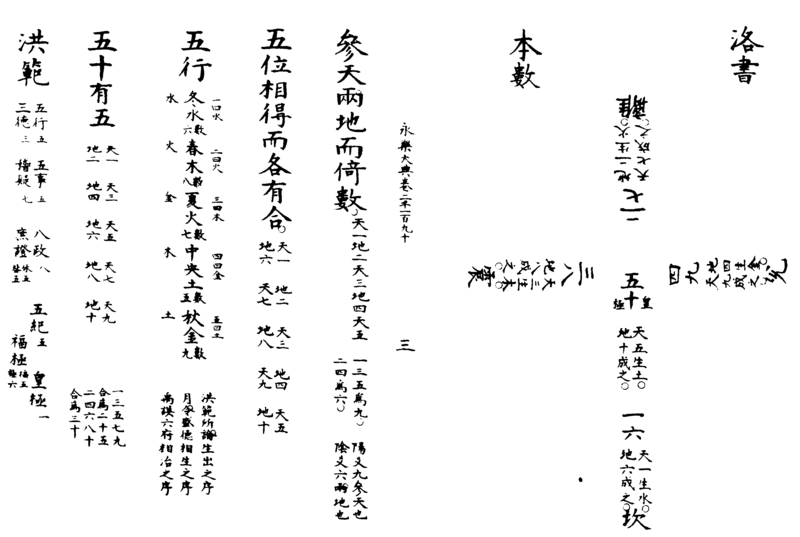 洛書
離
天七成之
地二生火
二七
兌
地四生金
天九成之
四九
五十
皇極
天五生土
地十成之
三八
天三生木
地八成之
震
一六
天一生水
地六成之
坎
本數
永樂大典卷二千一百九十
三
參天兩地而倚數
天一地二天三地四天五
一三五爲九
二四爲六
陽爻九參天也
陰爻六兩地也
五位相得而各有合
天一 地二 天三 地四 天五
地六 天七 地八 天九 地十
五行
一曰水 二曰火 三曰木 四曰金 五曰土
冬水數六 春木數八 夏火數七 中央土數五 秋金數九
水 火 金 木 土
洪範所論生出之序
月令盛德相生之序
禹謨六府相治之序
五十有五
天一 天三 天五 天七 天九
地二 地四 地六 地八 地十
一三五七九
合爲二十五
二四六八十
合爲三十
洪範
五行五 五事五 八政八 五紀五 皇極一
三德三 稽疑七 庶證休五咎五 福極福五極六